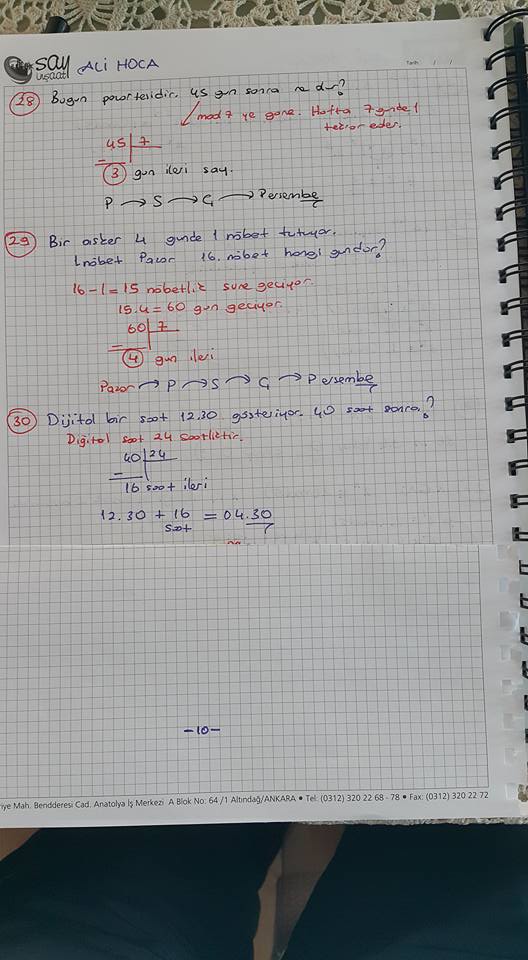 say
inşaat
ALİ HOCA
Tarih / /
28 Bugün pazartesidir. 45 gün sonra ne dir?
mod 7 ye göre. Hafta 7 günde 1
tekrar eder.
45 | 7
3 gün ileri say.
P → S → Ç → Perşembe
29 Bir asker 4 günde 1 nöbet tutuyor.
1 nöbet Pazar 16. nöbet hangi gündür?
16-1=15 nöbetlik süre geçiyor.
15.4=60 gün geçiyor.
60 | 7
4 gün ileri
Pazar → P → S → Ç → Perşembe
30 Dijital bir saat 12.30 gösteriyor. 40 saat sonra?
Diğital saat 24 saatliktir.
40 | 24
16 saat ileri
12.30 + 16 = 04.30
saat
-10-
riye Mah. Bendderesi Cad. Anatolya İş Merkezi A Blok No: 64 /1 Altındağ/ANKARA • Tel: (0312) 320 22 68 - 78 • Fax: (0312) 320 22 72